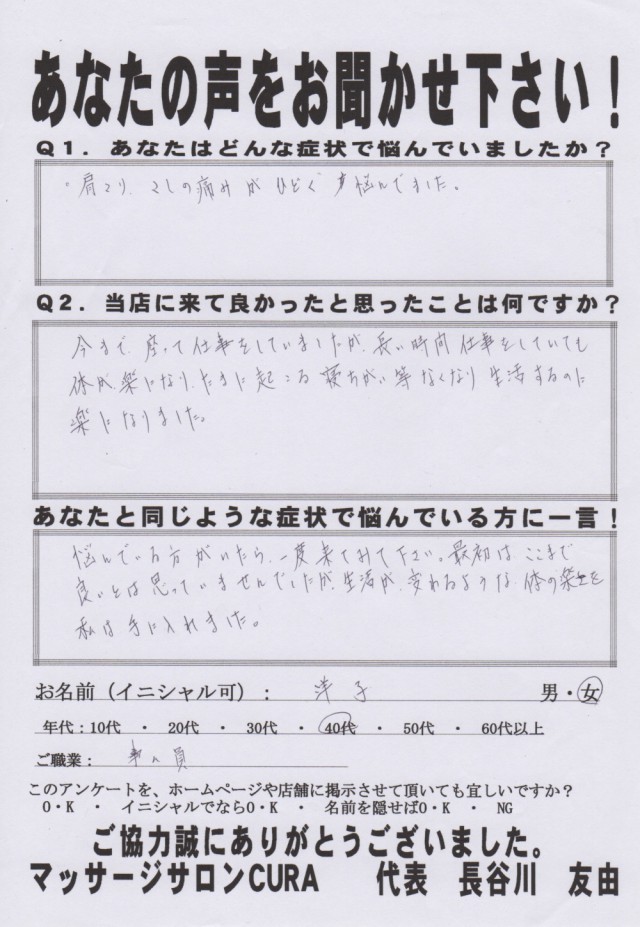 あなたの声をお聞かせ下さい！
Q1．あなたはどんな症状で悩んでいましたか？
・肩こり、こしの痛みがひどく 悩んでました。
Q2．当店に来て良かったと思ったことは何ですか？
今まで、座って仕事をしていましたが、長い時間 仕事をしていても
体が楽になり、たまに起こる 寝ちがい等なくなり 生活するのに
楽になりました。
あなたと同じような症状で悩んでいる方に一言！
悩んでいる方がいたら、一度来てみて下さい。最初は ここまで
良いとは思っていませんでしたが、生活が、変わるような、体の楽を
私は手に入れました。
お名前（イニシャル可）： 洋子 男・女
年代：10代 ・ 20代 ・ 30代 ・ 40代 ・ 50代 ・ 60代以上
ご職業： 員
このアンケートを、ホームページや店舗に掲示させて頂いても宜しいですか？
O・K ・ イニシャルでならO・K ・ 名前を隠せばO・K ・ NG
ご協力誠にありがとうございました。
マッサージサロンCURA 代表 長谷川 友由